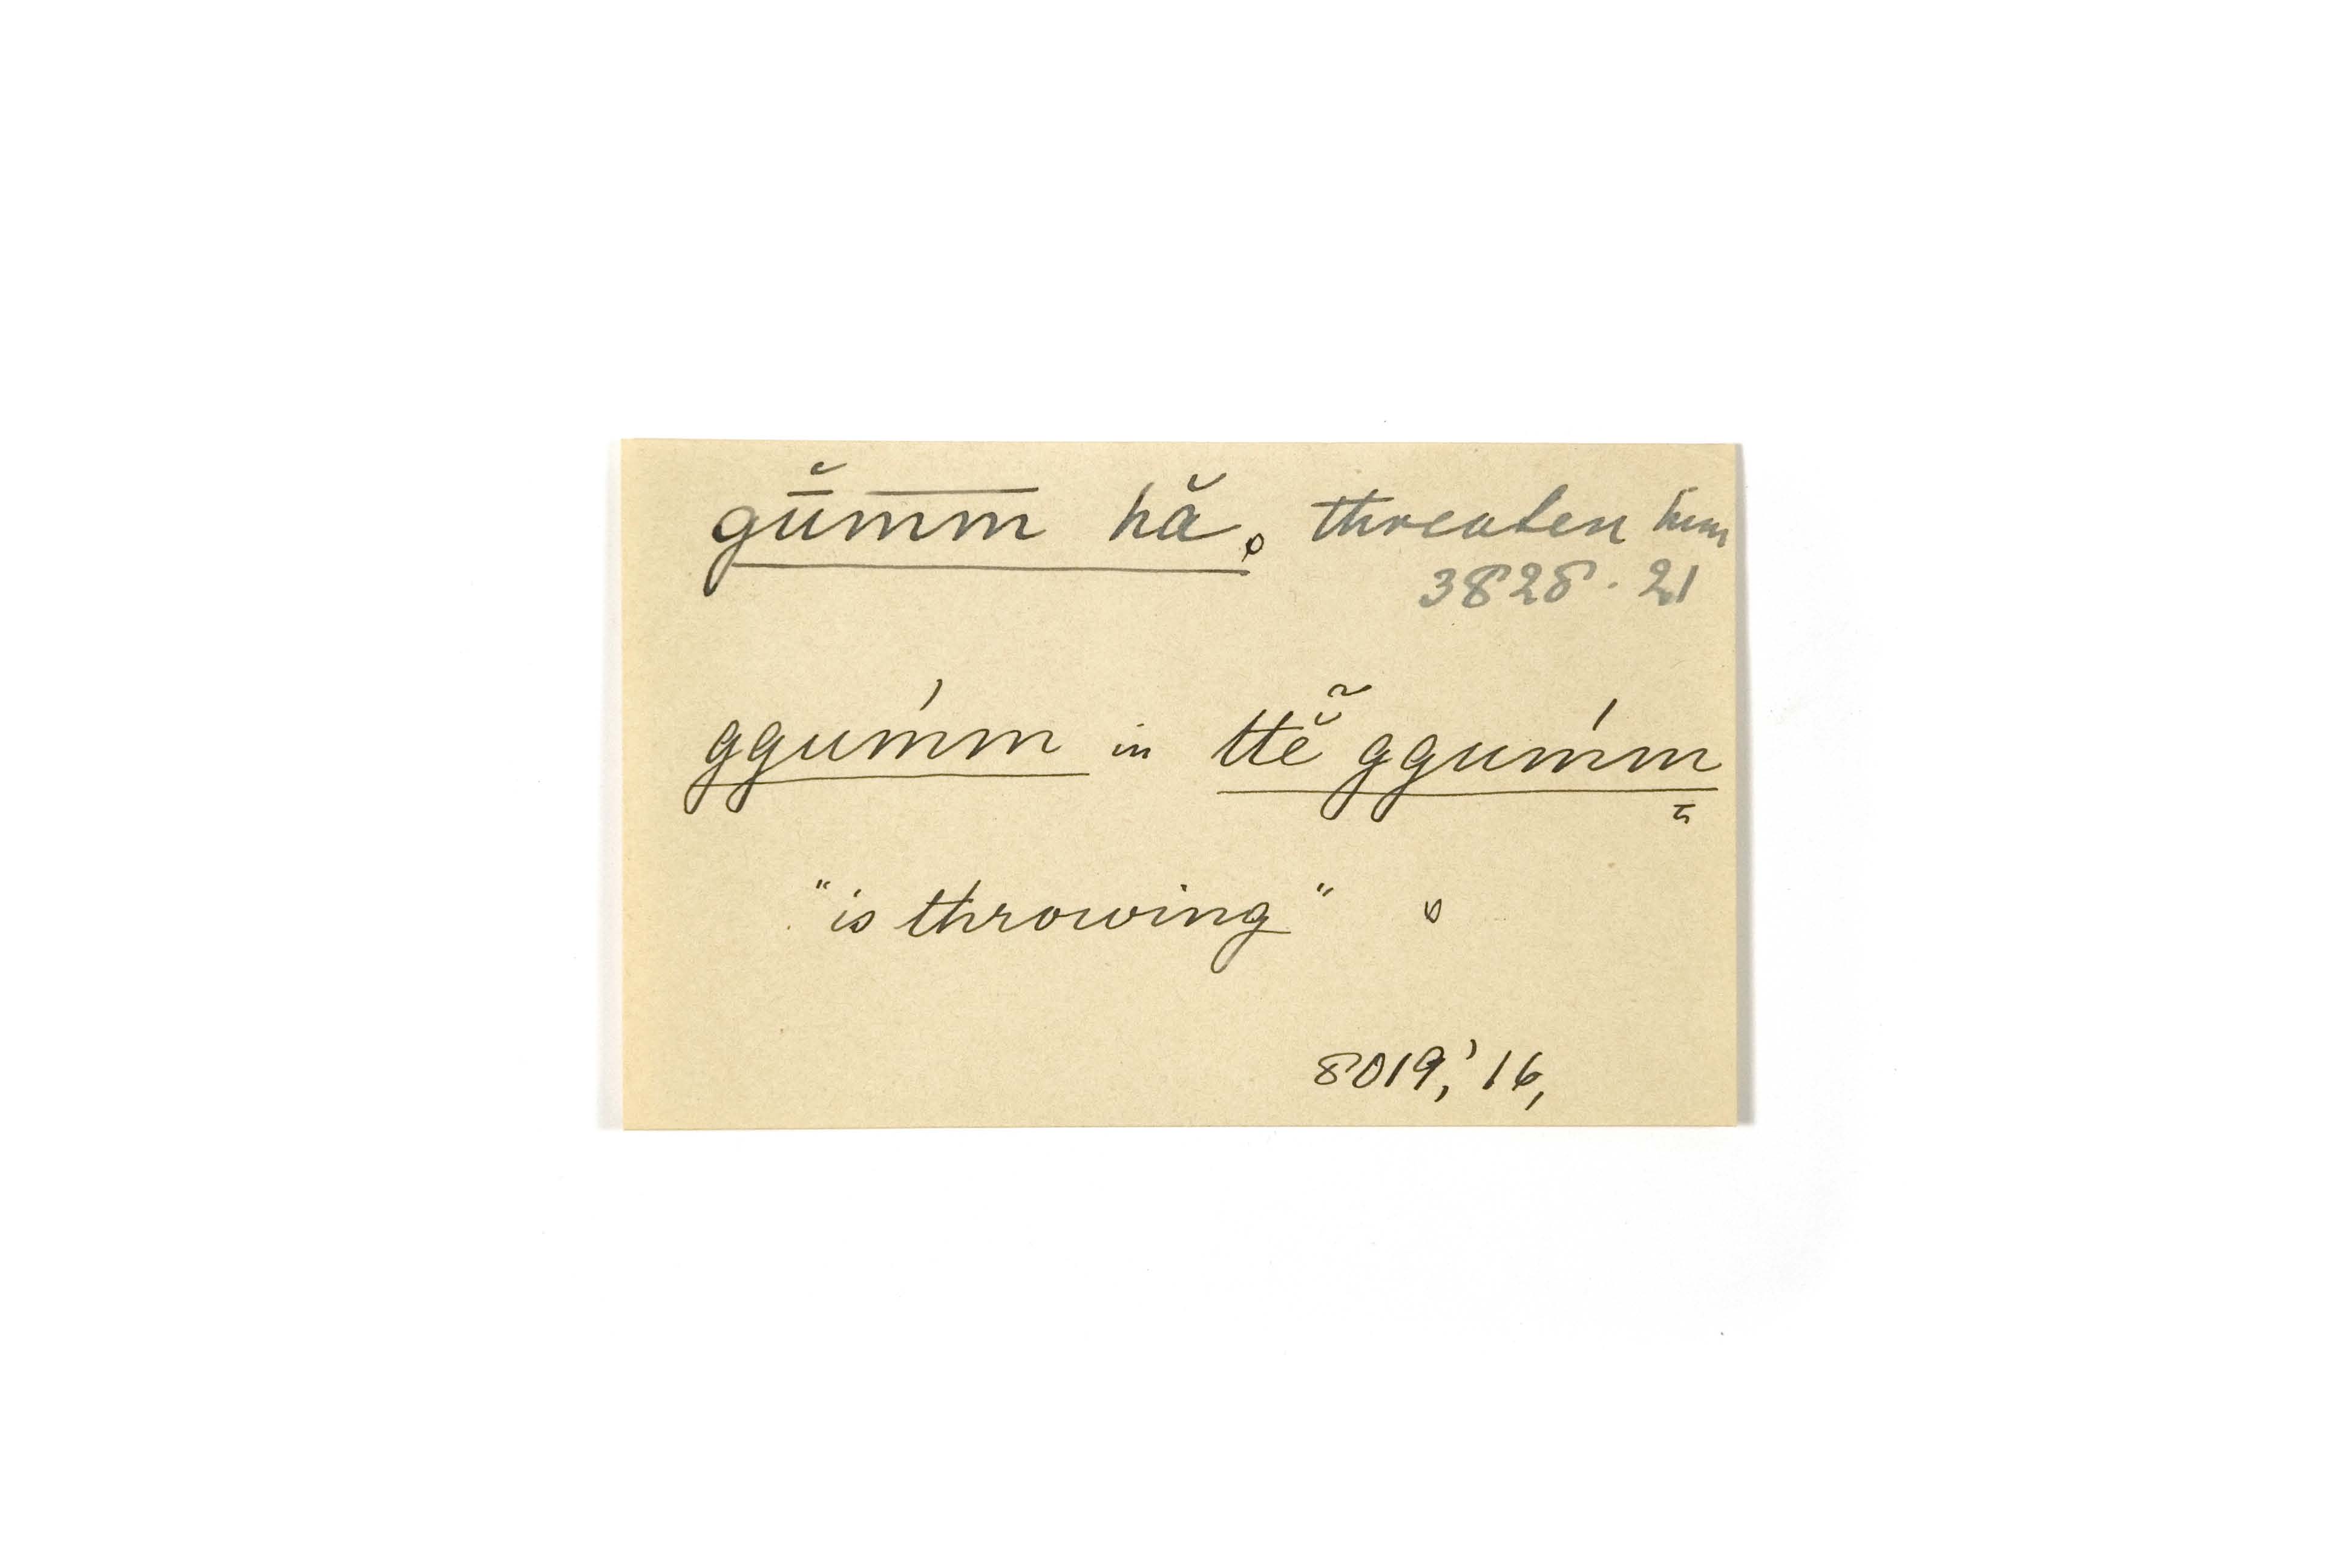 gŭ̄m̅m̅ hă. threaten him
3828. 21
ggum̍m in ttĕ̃ ggum̍m
"is throwing"
8019,' 16,